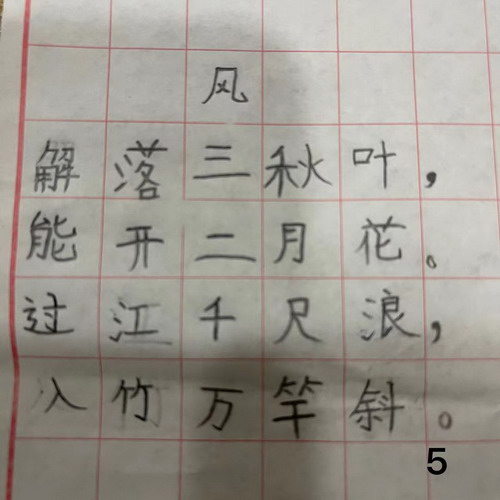 风
解落三秋叶，
能开二月花。
过江千尺浪，
入竹万竿斜。
5